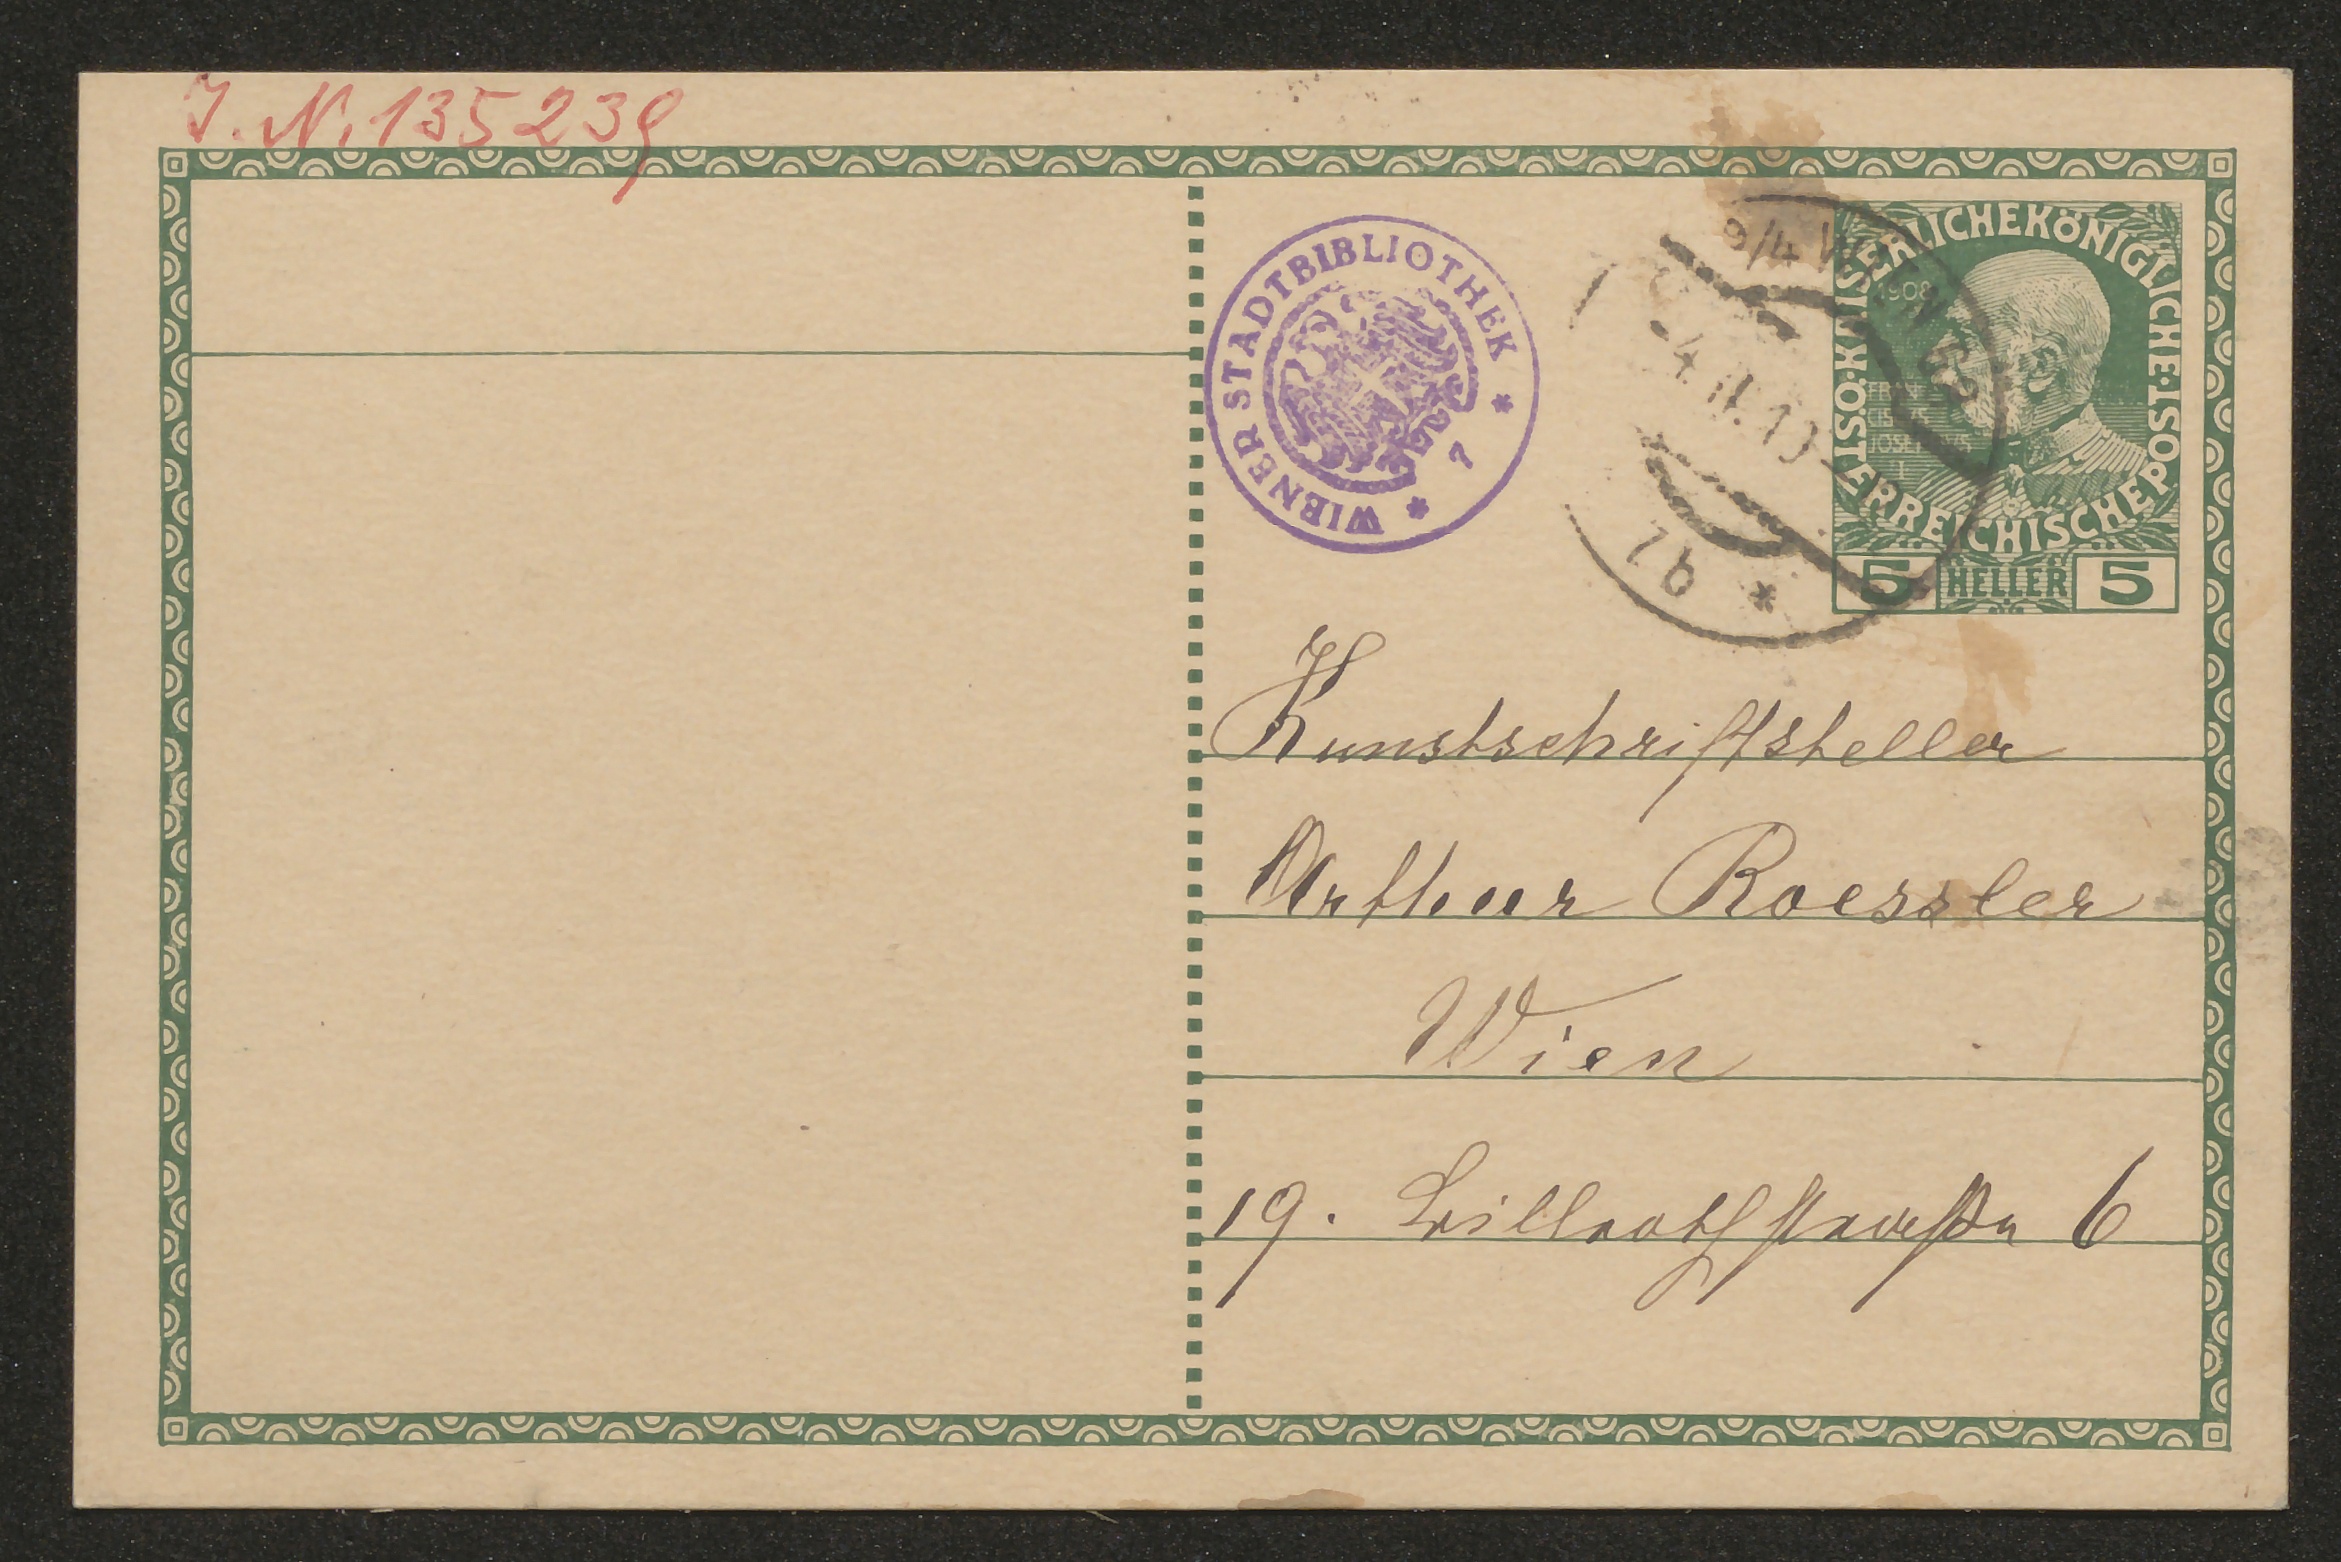 J. N. 135239
WIENER STADTBIBLIOTHEK * 7 *
9/4 WIEN 63
7b *
KAISERLICHE KÖNIGLICHE ÖSTERREICHISCHE POST
1908
5 HELLER 5
Kunstschriftsteller
Arthur Roessler
Wien
19. Billrothstraße 6